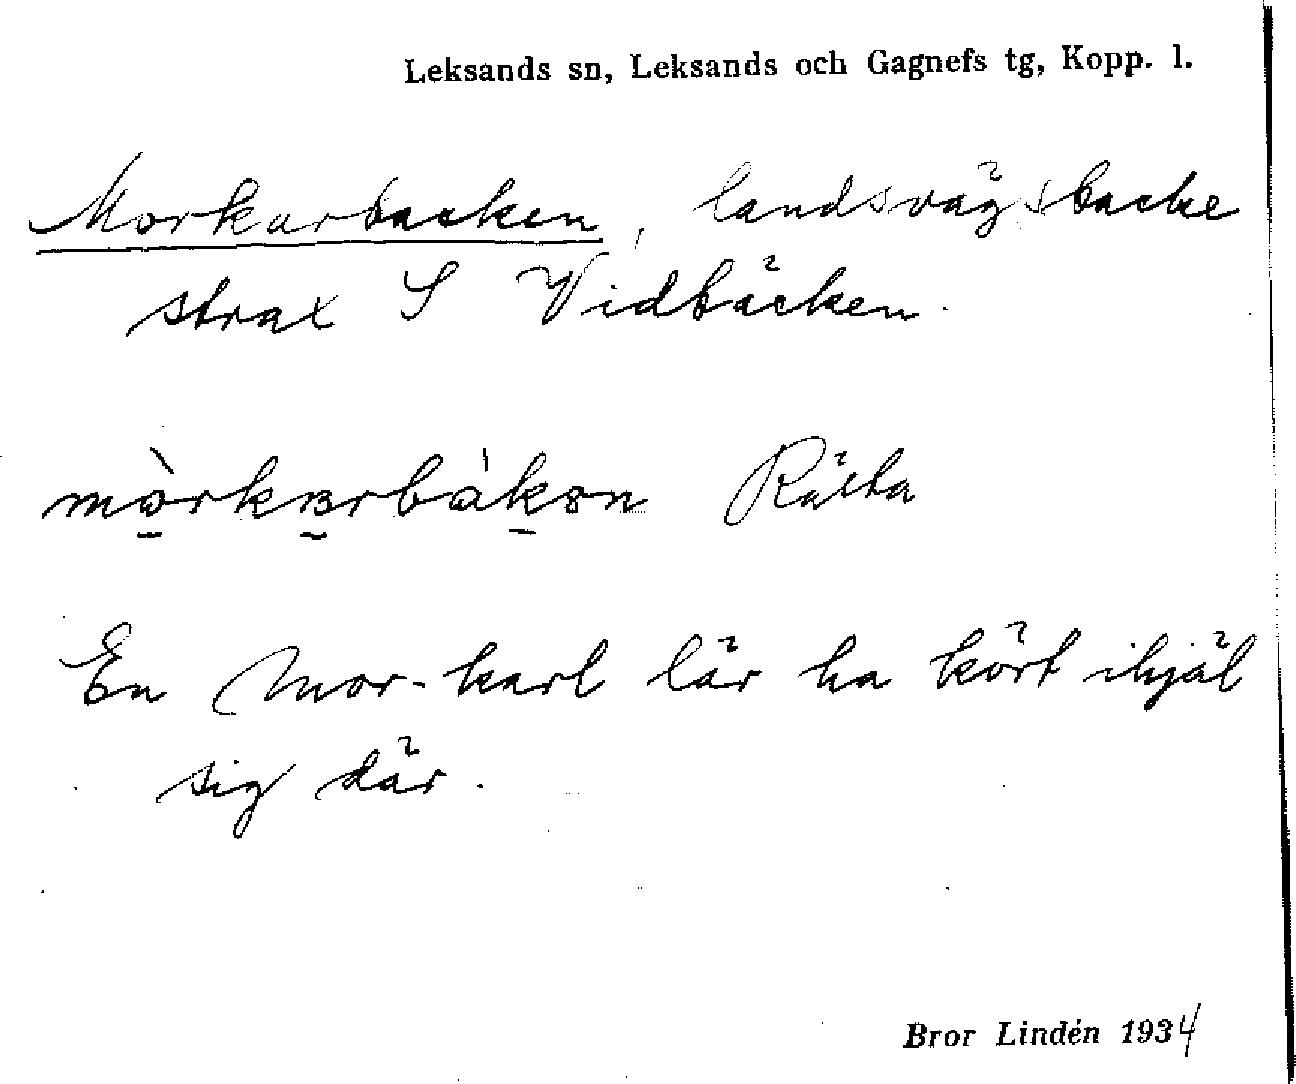 Leksands sn, Leksands och Gagnefs tg, Kopp. l.
Morkarbacken, landsvägsbacke
strax S Vidbäcken.
Rälta
En Mor-karl lär ha kört ihjäl
sig där.
Bror Lindén 1934